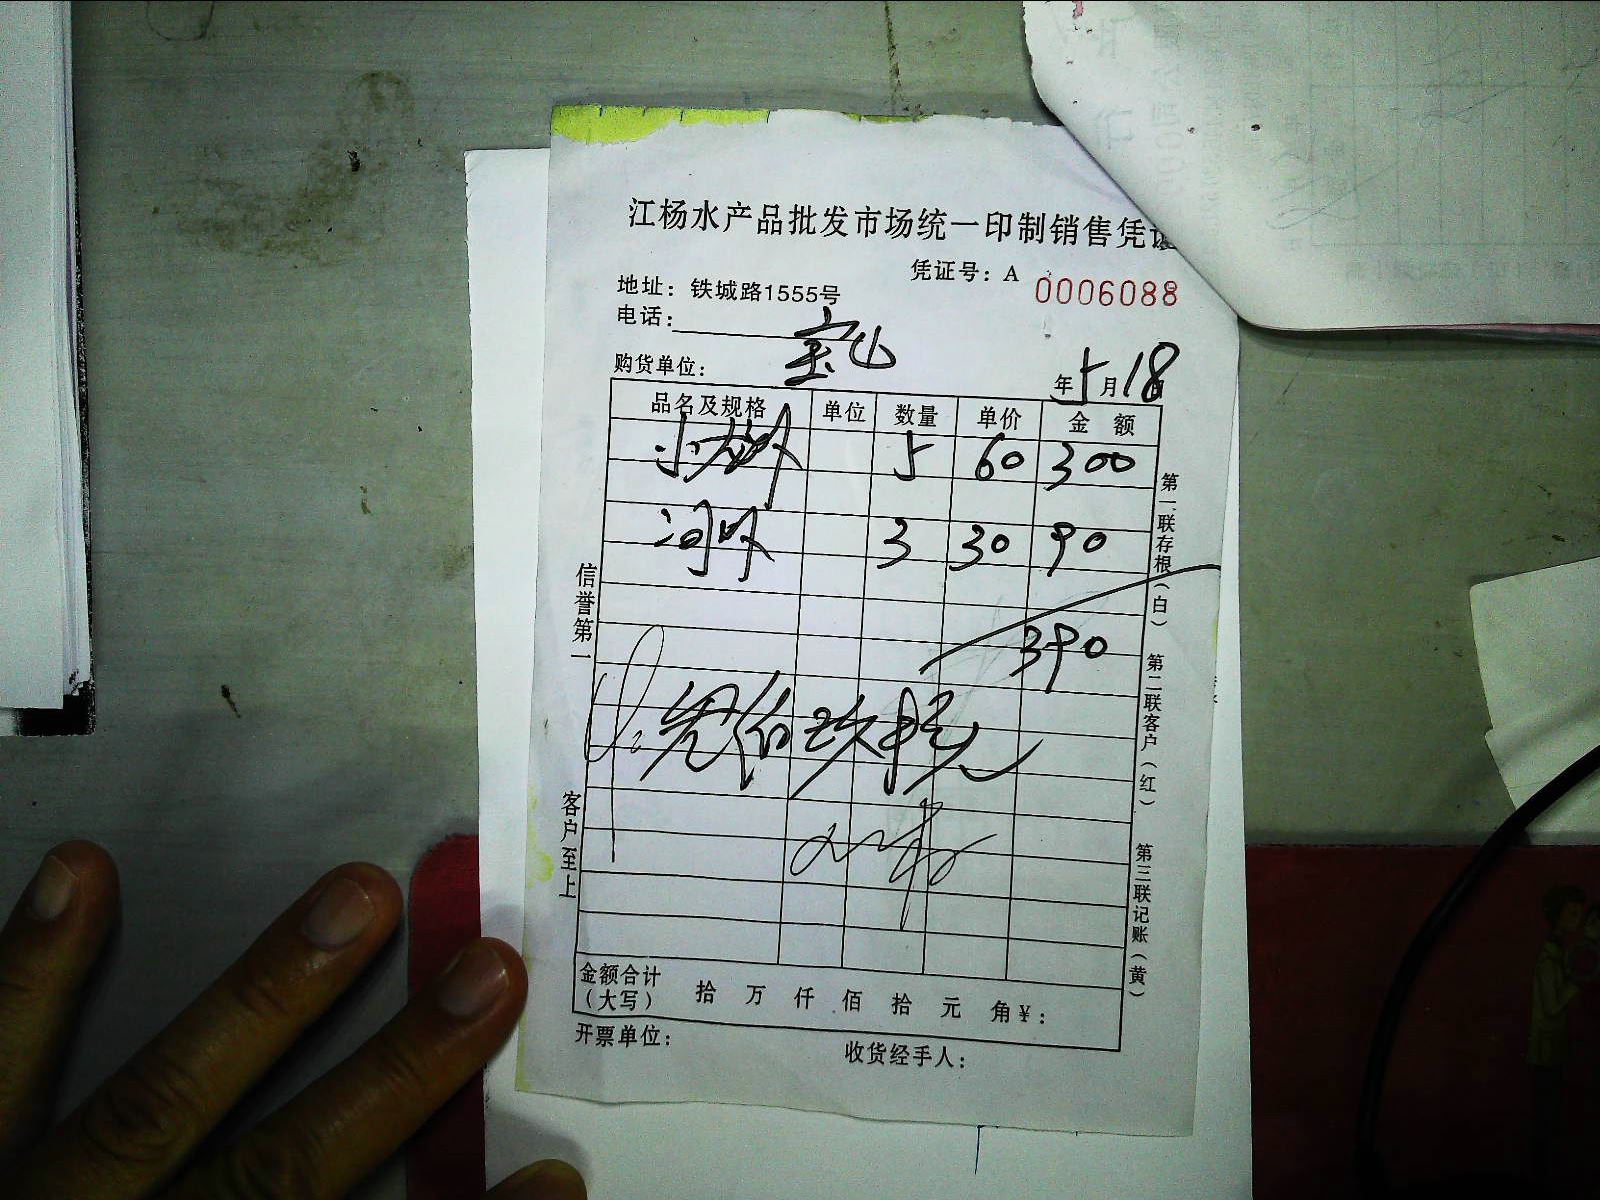 江杨水产品批发市场统一印制销售凭证
凭证号：A 0006088
地址：铁城路1555号
电话：
购货单位： 宝山
年5月18日
品名及规格 单位 数量 单价 金 额
小龙虾 5 60 300
河虾 3 30 90
390
叁佰玖拾元
金额合计
（大写） 拾 万 仟 佰 拾 元 角 ¥：
开票单位： 收货经手人：
信誉第一
客户至上
第一联存根（白） 第二联客户（红） 第三联记账（黄）